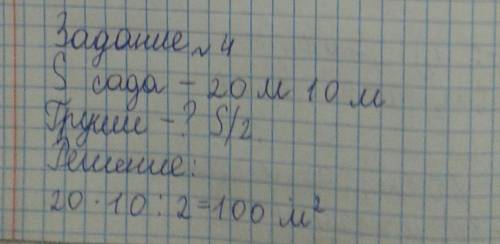 Задание ~ 4
S сада - 20 м 10 м
Груши - ? S/2
Решение:
20 · 10 : 2 = 100 м²